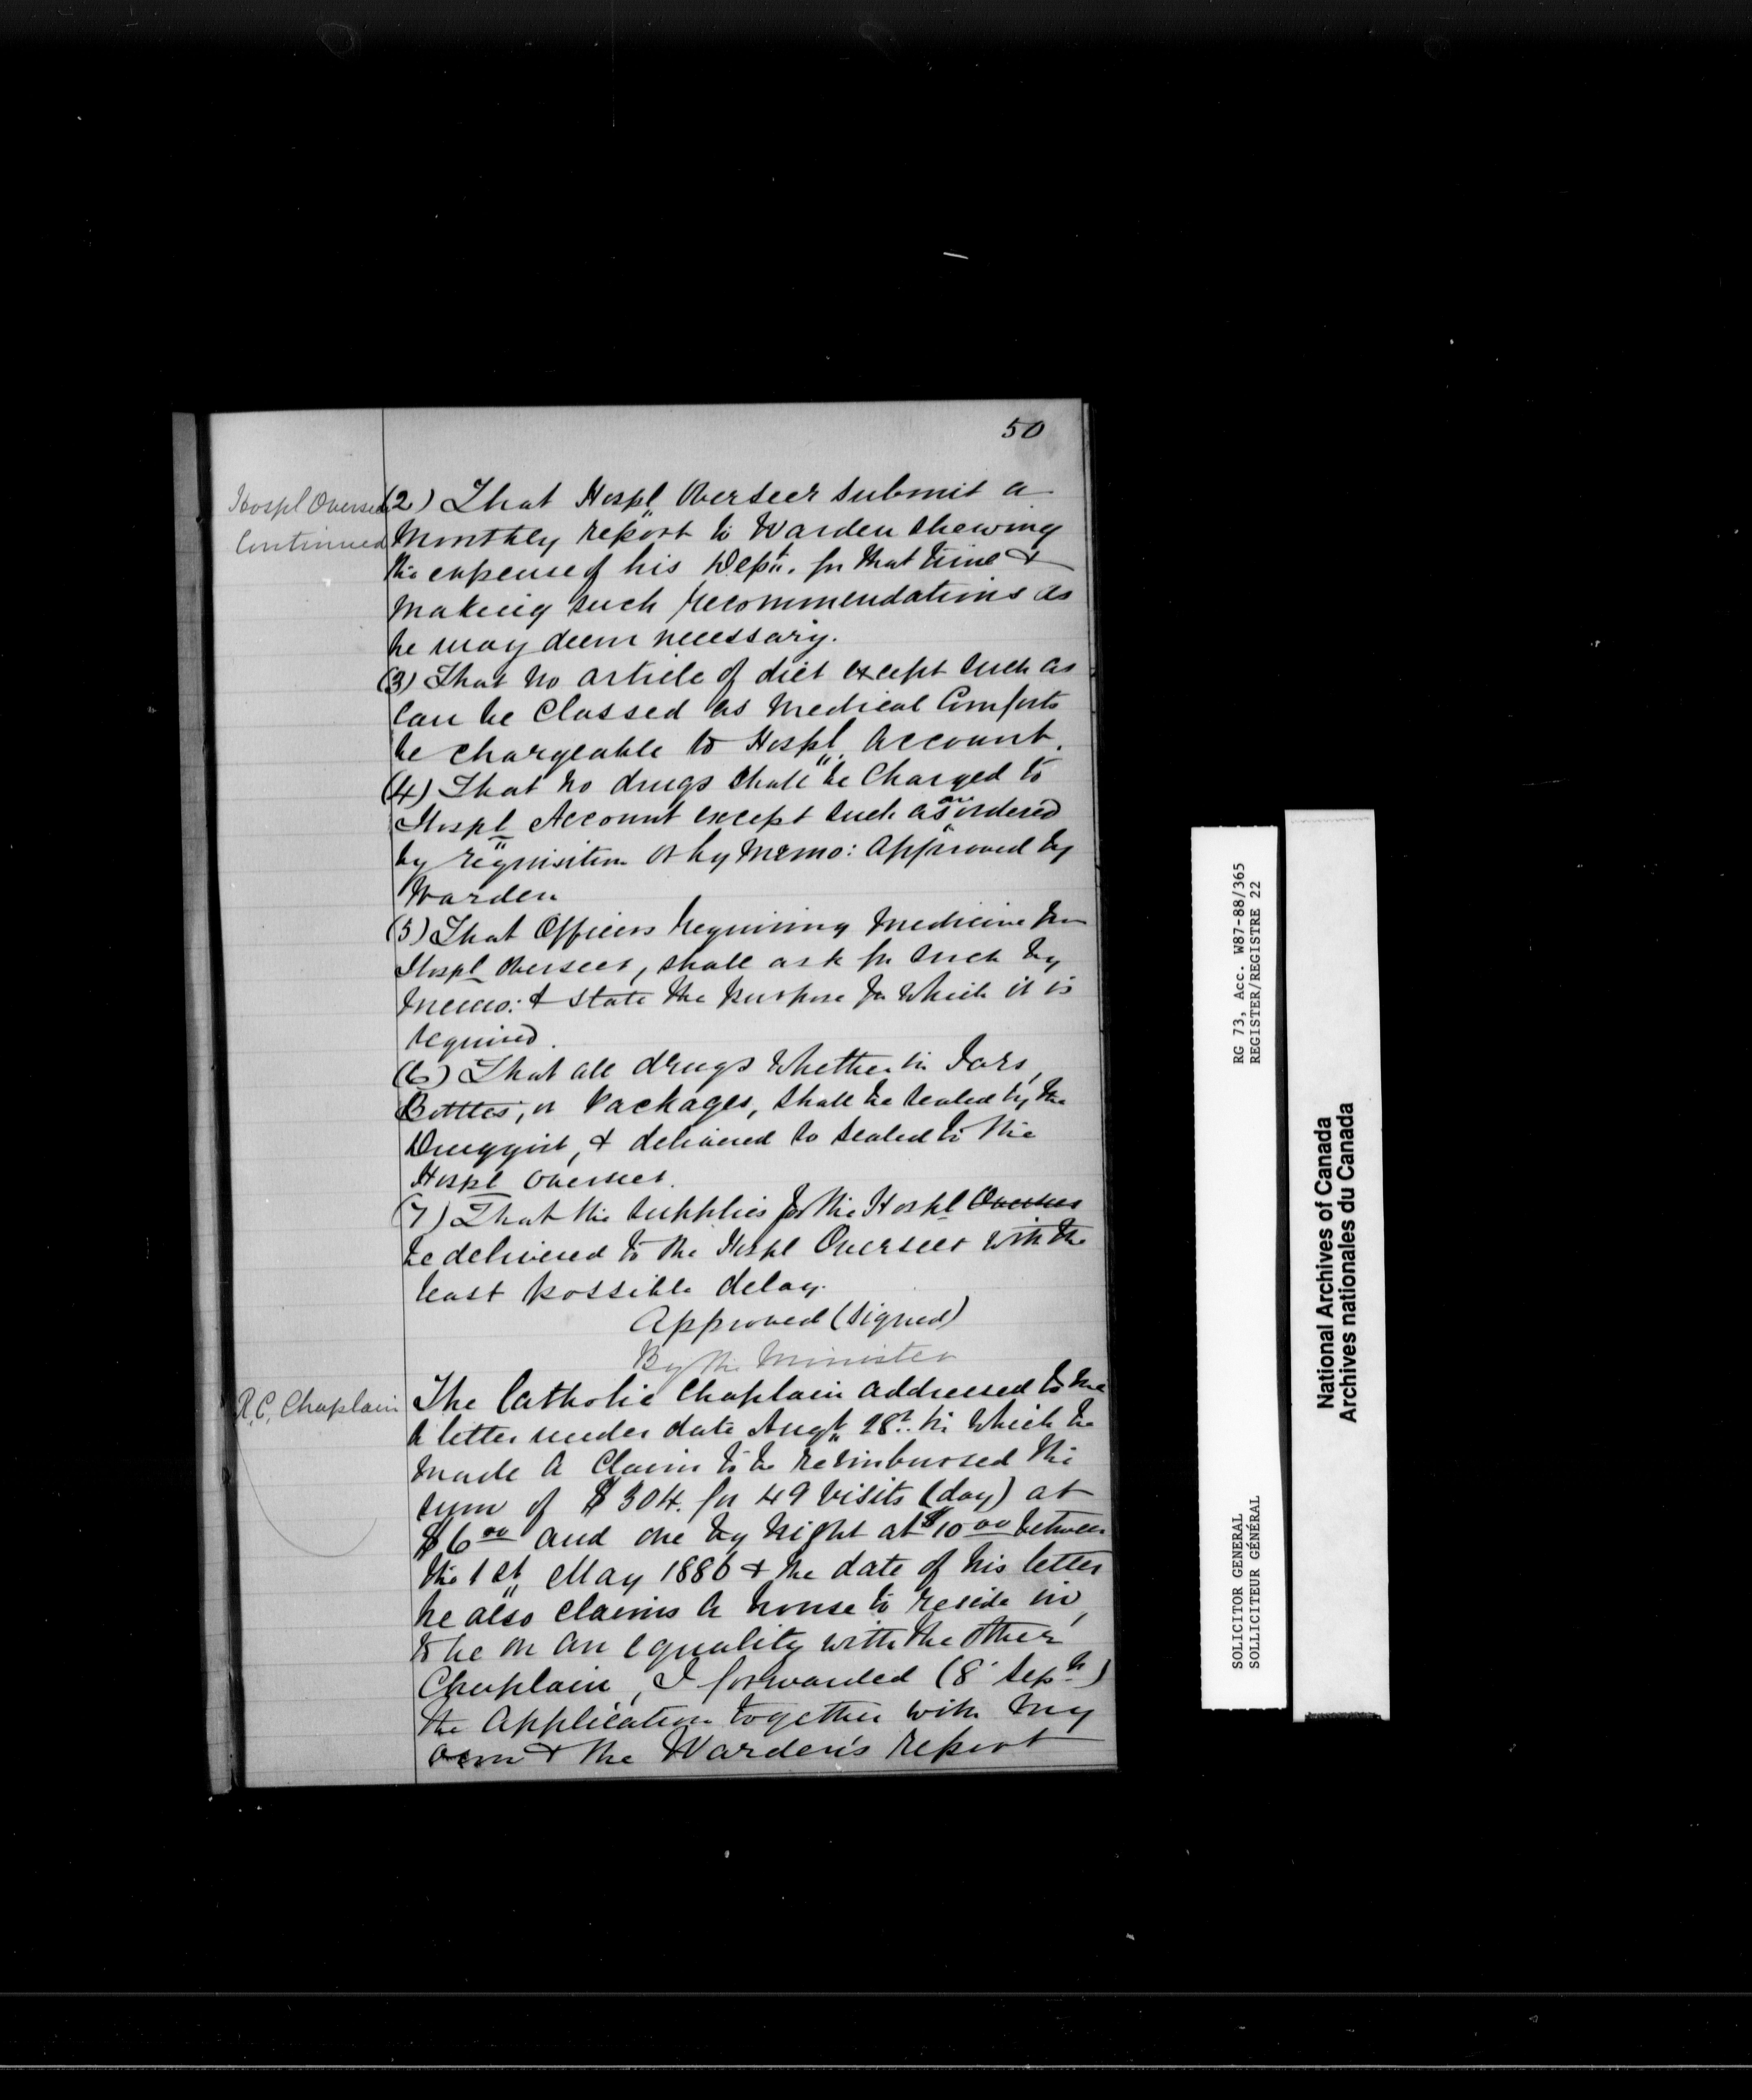 50
Hospl Overseer
Continued
(2) That Hospl Overseer submit a
Monthly report to Warden shewing
the expense of his Dept. for that time &
making such recommendations as
he may deem necessary.
(3) That no article of diet except such as
can be classed as Medical Comforts
be chargeable to Hospl. Account.
(4) That no drugs shall be charged to
Hospl Account except such as are ordered
by requisition or by Memo: Approved by
Warden
(5) That Officers requiring medicine from
Hospl Overseer, shall ask for such by
memo: & state the purpose for which it is
required.
(6) That all drugs whether in Jars,
Bottles, or Packages, shall be sealed by the
Druggist, & delivered so sealed to the
Hospl Overseer.
(7) That the supplies for the Hospl Overseer
be delivered to the Hospl Overseer with the
least possible delay.
Approved (signed)
By the Minister
R.C. Chaplain
The Catholic Chaplain addressed to me
a letter under date Augt 28th in which he
made a Claim to be reimbursed the
sum of $304. for 49 visits (day) at
$6 00 and one by night at $10 00 between
the 1st May 1886 & the date of his letter
he also claims a house to reside in,
to be on an equality with the other
Chaplain, I forwarded (8 Sept.)
the Application together with my
own & the Warden's report
RG 73, Acc. W87-88/365
REGISTER/REGISTRE 22
SOLICITOR GENERAL
SOLLICITEUR GÉNÉRAL
National Archives of Canada
Archives nationales du Canada